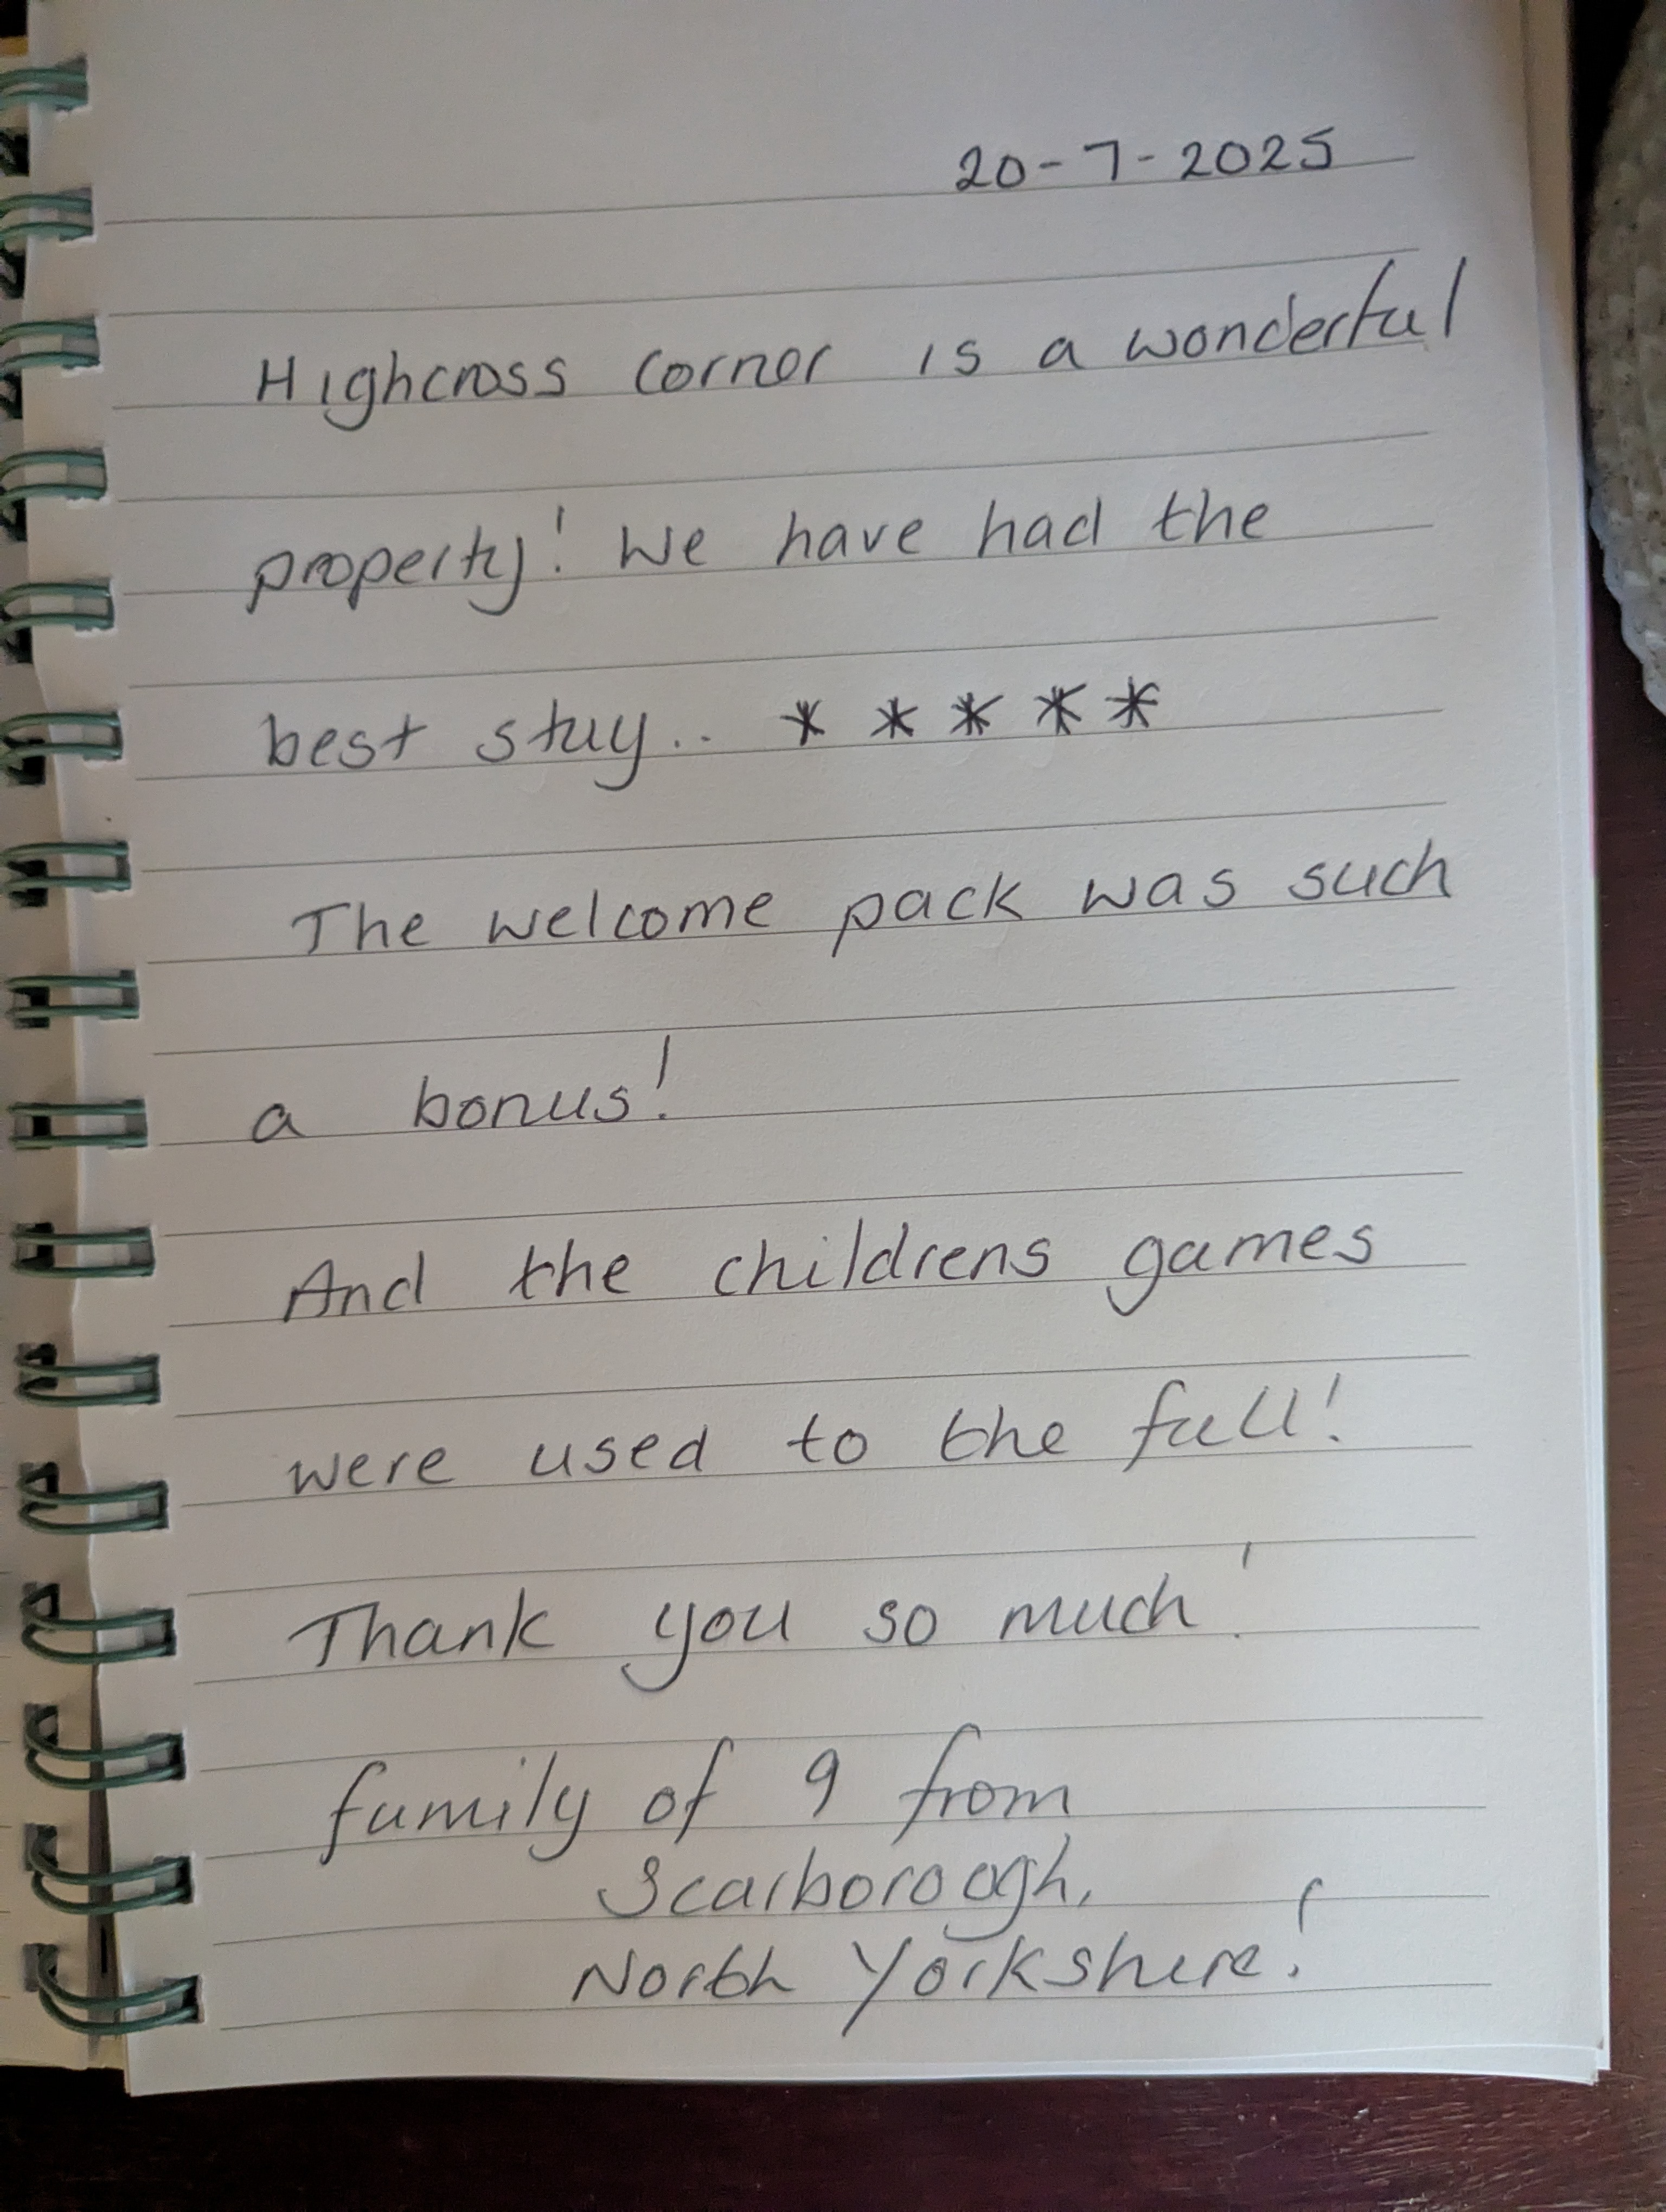 20-7-2025
Highcross corner is a wonderful
property! We have had the
best stay.. * * * * *
The welcome pack was such
a bonus!
And the childrens games
were used to the full!
Thank you so much!
family of 9 from
Scarborough,
North Yorkshire!